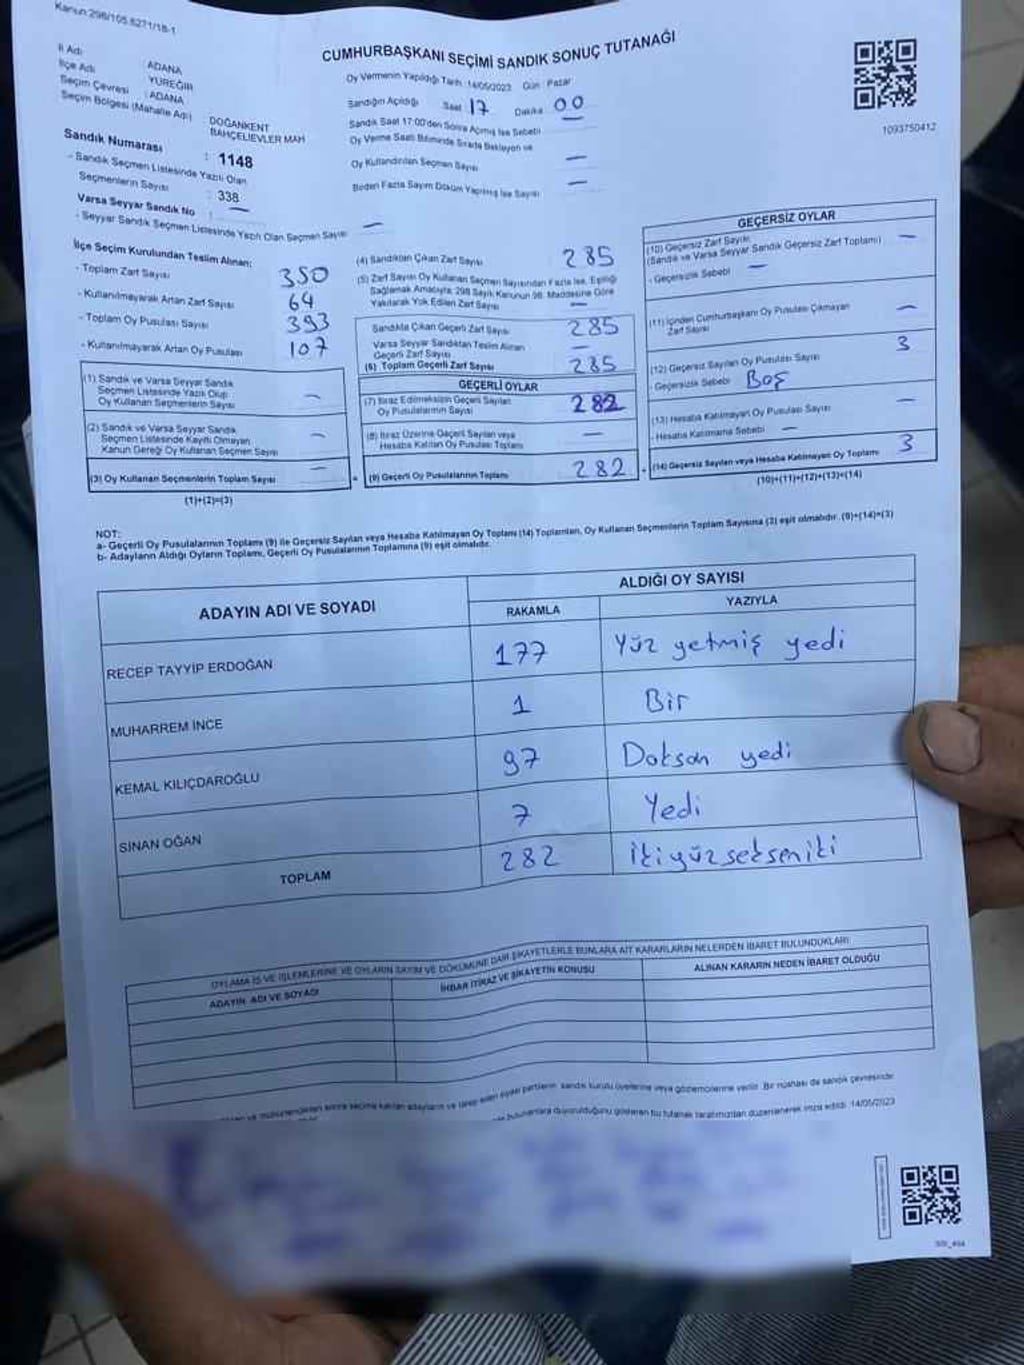 Kanun:298/105.6271/18-1
CUMHURBAŞKANI SEÇİMİ SANDIK SONUÇ TUTANAĞI
İl Adı : ADANA
İlçe Adı YÜREĞİR
Seçim Çevresi : ADANA
Seçim Bölgesi (Mahalle Adı) : DOĞANKENT BAHÇELİEVLER MAH
Sandık Numarası : 1148
- Sandık Seçmen Listesinde Yazılı Olan
Seçmenlerin Sayısı : 338
Varsa Seyyar Sandık No : —
- Seyyar Sandık Seçmen Listesinde Yazılı Olan Seçmen Sayısı —
Oy Vermenin Yapıldığı Tarih :14/05/2023 Gün : Pazar
Sandığın Açıldığı Saat 17 Dakika 00
Sandık Saat 17:00'den Sonra Açılmış İse Sebebi —
Oy Verme Saati Bitiminde Sırada Bekleyen ve
Oy Kullandırılan Seçmen Sayısı —
Birden Fazla Sayım Döküm Yapılmış İse Sayısı —
1093750412
İlçe Seçim Kurulundan Teslim Alınan:
- Toplam Zarf Sayısı 350
- Kullanılmayarak Artan Zarf Sayısı 64
- Toplam Oy Pusulası Sayısı 393
- Kullanılmayarak Artan Oy Pusulası 107
(1) Sandık ve Varsa Seyyar Sandık
Seçmen Listesinde Yazılı Olup
Oy Kullanan Seçmenlerin Sayısı —
(2) Sandık ve Varsa Seyyar Sandık
Seçmen Listesinde Kayıtlı Olmayan
Kanun Gereği Oy Kullanan Seçmen Sayısı —
(3) Oy Kullanan Seçmenlerin Toplam Sayısı —
(1)+(2)=(3)
(4) Sandıktan Çıkan Zarf Sayısı 285
(5) Zarf Sayısı Oy Kullanan Seçmen Sayısından Fazla İse, Eşitliği
Sağlamak Amacıyla, 298 Sayılı Kanunun 98. Maddesine Göre
Yakılarak Yok Edilen Zarf Sayısı —
Sandıkta Çıkan Geçerli Zarf Sayısı 285
Varsa Seyyar Sandıktan Teslim Alınan
Geçerli Zarf Sayısı —
(6) Toplam Geçerli Zarf Sayısı 285
GEÇERLİ OYLAR
(7) İtiraz Edilmeksizin Geçerli Sayılan
Oy Pusulalarının Sayısı 282
(8) İtiraz Üzerine Geçerli Sayılan veya
Hesaba Katılan Oy Pusulası Toplamı —
(9) Geçerli Oy Pusulalarının Toplamı 282
GEÇERSİZ OYLAR
(10) Geçersiz Zarf Sayısı
(Sandık ve Varsa Seyyar Sandık Geçersiz Zarf Toplamı) —
- Geçersizlik Sebebi —
(11) İçinden Cumhurbaşkanı Oy Pusulası Çıkmayan
Zarf Sayısı —
(12) Geçersiz Sayılan Oy Pusulası Sayısı 3
- Geçersizlik Sebebi Boş
(13) Hesaba Katılmayan Oy Pusulası Sayısı —
- Hesaba Katılmama Sebebi —
(14) Geçersiz Sayılan veya Hesaba Katılmayan Oy Toplamı 3
(10)+(11)+(12)+(13)=(14)
NOT:
a- Geçerli Oy Pusulalarının Toplamı (9) ile Geçersiz Sayılan veya Hesaba Katılmayan Oy Toplamı (14) Toplamları, Oy Kullanan Seçmenlerin Toplam Sayısına (3) eşit olmalıdır. (9)+(14)=(3)
b- Adayların Aldığı Oyların Toplamı, Geçerli Oy Pusulalarının Toplamına (9) eşit olmalıdır.
ADAYIN ADI VE SOYADI ALDIĞI OY SAYISI
RAKAMLA YAZIYLA
RECEP TAYYİP ERDOĞAN 177 Yüz yetmiş yedi
MUHARREM İNCE 1 Bir
KEMAL KILIÇDAROĞLU 97 Doksan yedi
SİNAN OĞAN 7 Yedi
TOPLAM 282 İkiyüzsekseniki
OYLAMA İŞ VE İŞLEMLERİNE VE OYLARIN SAYIM VE DÖKÜMÜNE DAİR ŞİKAYETLERLE BUNLARA AİT KARARLARIN NELERDEN İBARET BULUNDUKLARI
ADAYIN ADI VE SOYADI İHBAR İTİRAZ VE ŞİKAYETİN KONUSU ALINAN KARARIN NEDEN İBARET OLDUĞU
sonra seçime katılan adayların ve talep eden siyasi partilerin sandık kurulu üyelerine veya gözlemcilerine verilir. Bir nüshası da sandık çevresinde
duyurulduğunu gösteren bu tutanak tarafımızdan düzenlenerek imza edildi. 14/05/2023